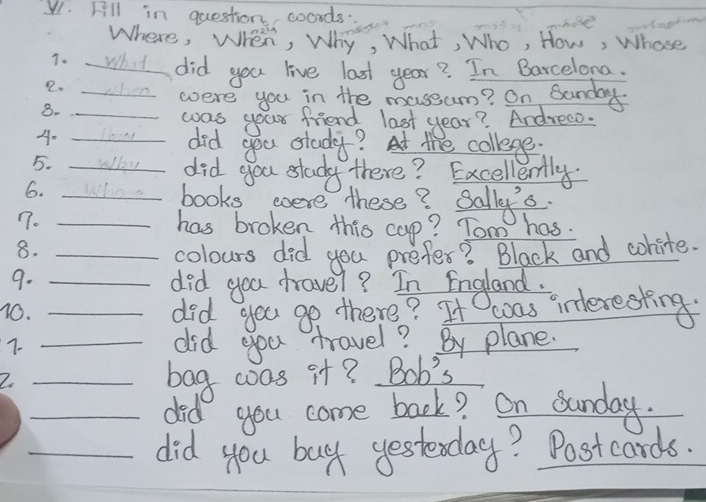 V. Fill in question words:
Where, When, Why, What, Who, How, Whose
1. What did you live last year? In Barcelona.
2. when were you in the museum? On Sunday.
3. was your friend last year? Andreco.
4. did you study? At the college.
5. Why did you study there? Excellently.
6. books were these? Sally's.
7. has broken this cup? Tom has.
8. colours did you prefer? Black and white.
9. did you travel? In England.
10. did you go there? It was interesting.
1. did you travel? By plane.
2. bag was it? Bob's
did you come back? On Sunday.
did you buy yesterday? Postcards.